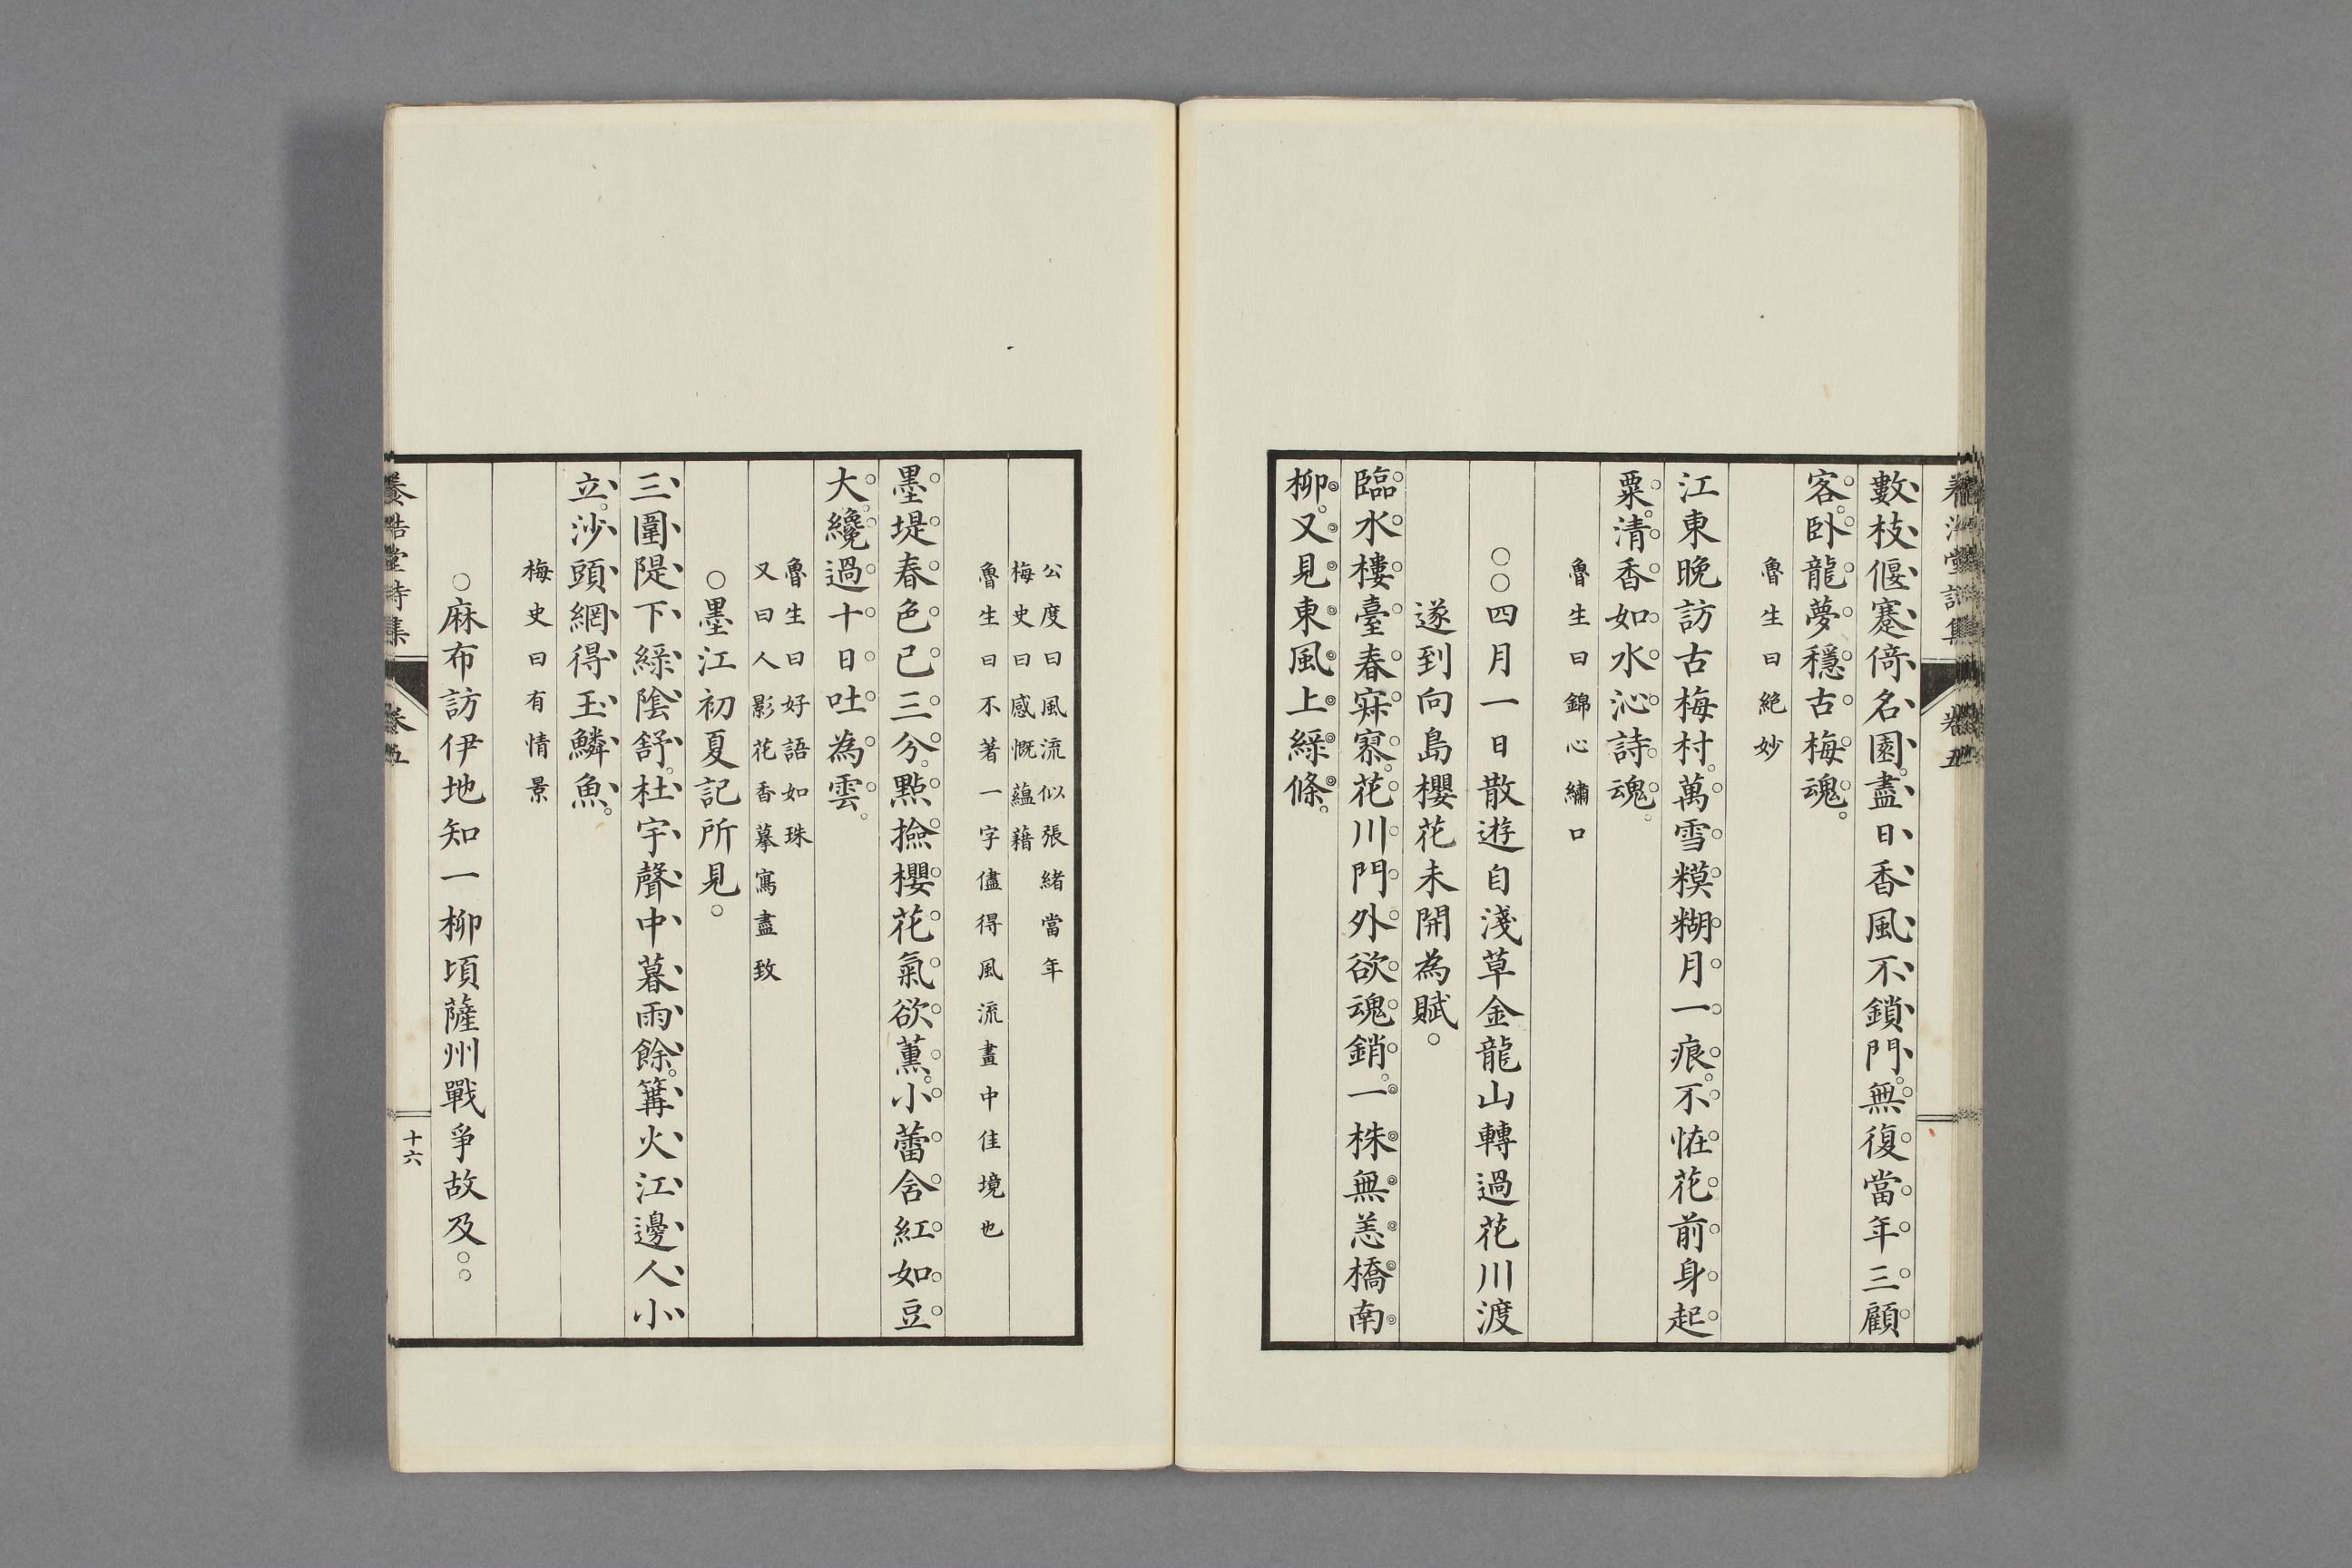 數枝偃蹇倚名園。盡日香風不鎖門。無復當年三顧
客。臥龍夢穩古梅魂。
魯生曰絕妙
江東晚訪古梅村。萬雪糢糊月一痕。不恠花前身起
粟。清香如水沁詩魂。
魯生曰錦心繡口
○○四月一日散遊自淺草金龍山轉過花川渡
遂到向島櫻花未開為賦○
臨水樓臺春寂寥。花川門外欲魂銷。一株無恙橋南
柳。又見東風上綠條。
公度曰風流似張緒當年
梅史曰感慨蘊藉
魯生曰不著一字儘得風流畫中佳境也
墨堤春色已三分。點撿櫻花氣欲薰。小蕾含紅如豆
大。纔過十日吐為雲。
魯生曰好語如珠
又曰人影花香摹寫盡致
○墨江初夏記所見○
三圍隄下綠陰舒。杜宇聲中暮雨餘。篝火江邊人小
立。沙頭網得玉鱗魚。
梅史曰有情景
○麻布訪伊地知一柳頃薩州戰爭故及○○
卷五
十六